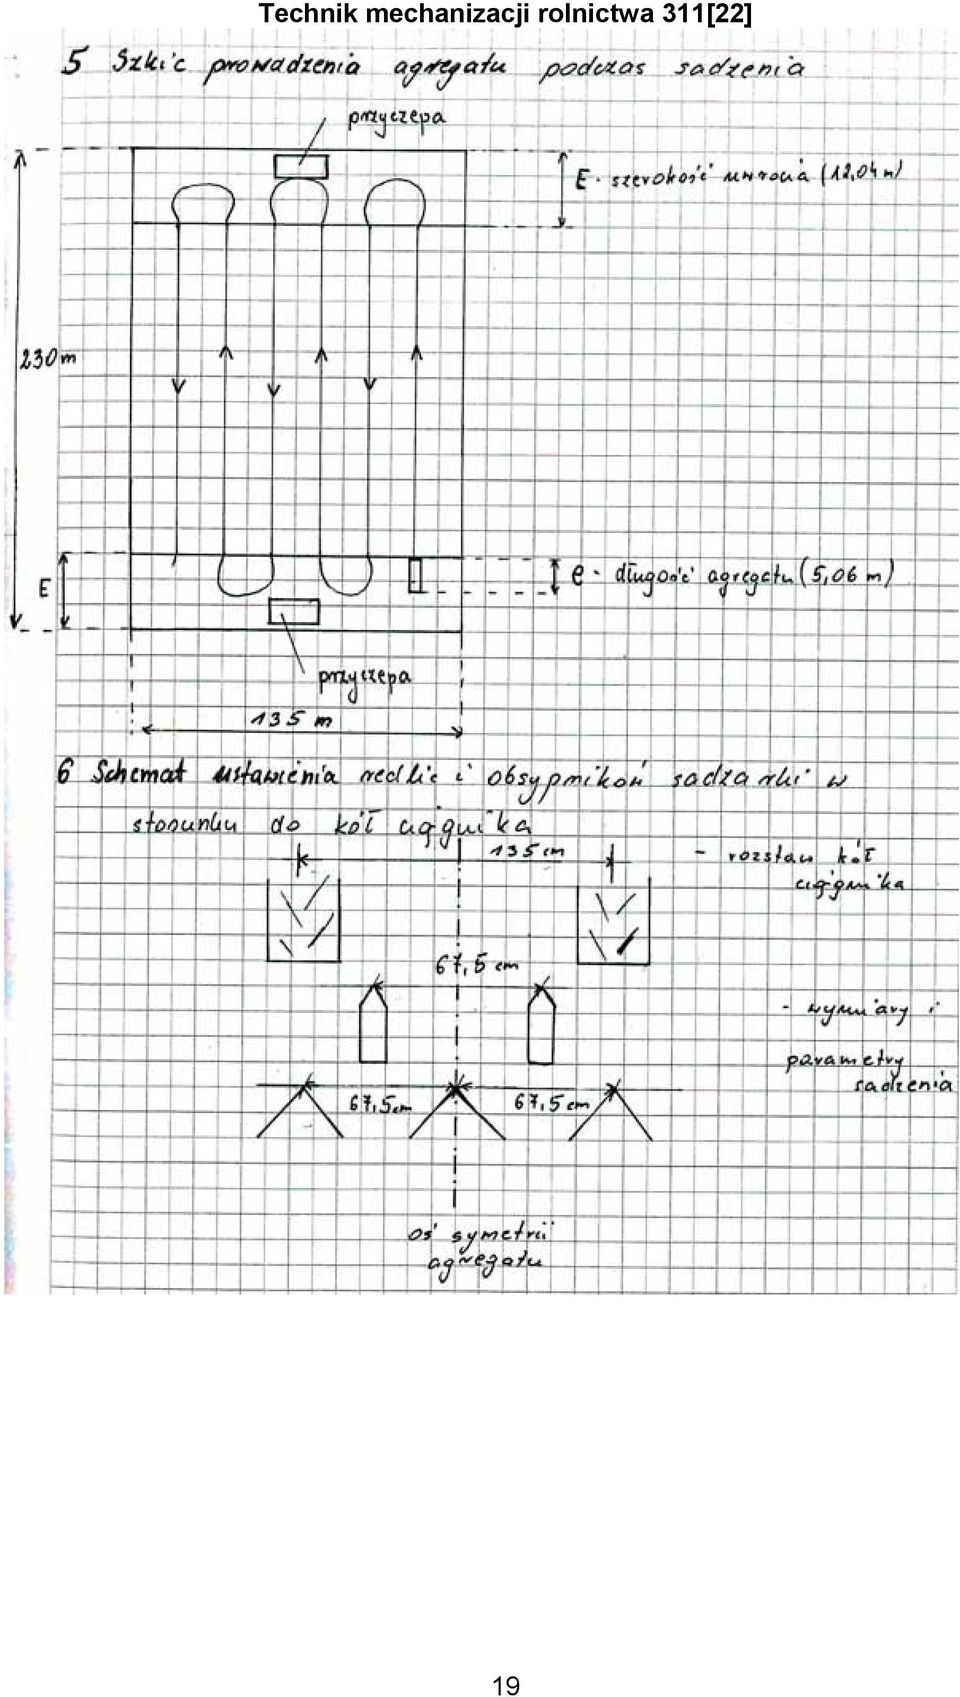 Technik mechanizacji rolnictwa 311[22]
5 Szkic prowadzenia agregatu podczas sadzenia
przyczepa
E - szerokość uwrocia (12,04 m)
230 m
E
e - długość agregatu (5,06 m)
przyczepa
135 m
6 Schemat ustawienia redlic i obsypników sadzarki w
stosunku do kół ciągnika
135 cm
- rozstaw kół
ciągnika
67,5 cm
- wymiary i
parametry
sadzenia
67,5 cm
67,5 cm
oś symetrii
agregatu
19